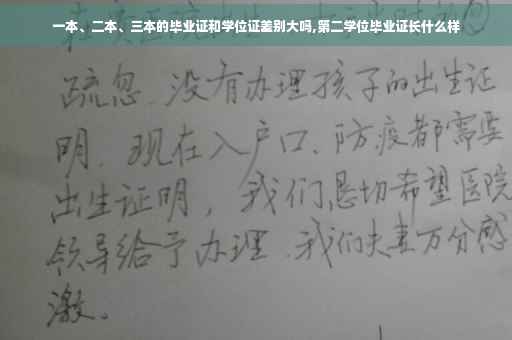 一本、二本、三本的毕业证和学位证差别大吗,第二学位毕业证长什么样
疏忽、没有办理孩子的出生证
明、现在入户口、防疫都需要
出生证明，我们恳切希望医院
领导给予办理、我们夫妻万分感
激。